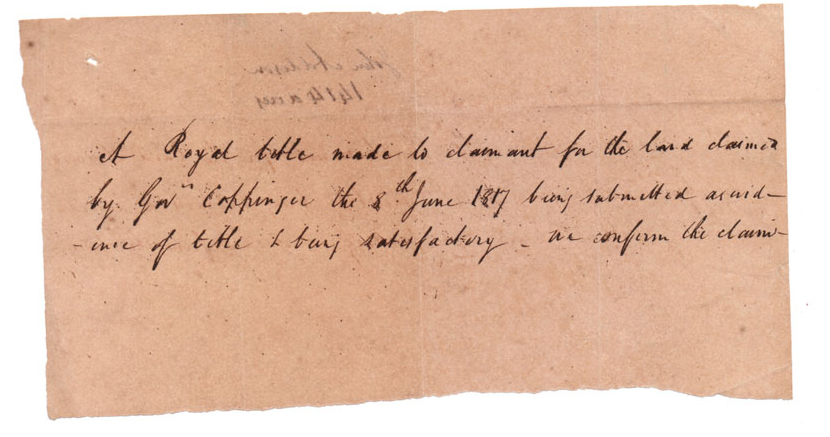 John Addison
1414 acres
A Royal title made to claimant for the land claimed
by Govn Coppinger the 8th June 1817 being submitted as evid-
-ence of title & being satisfactory - we confirm the claim-